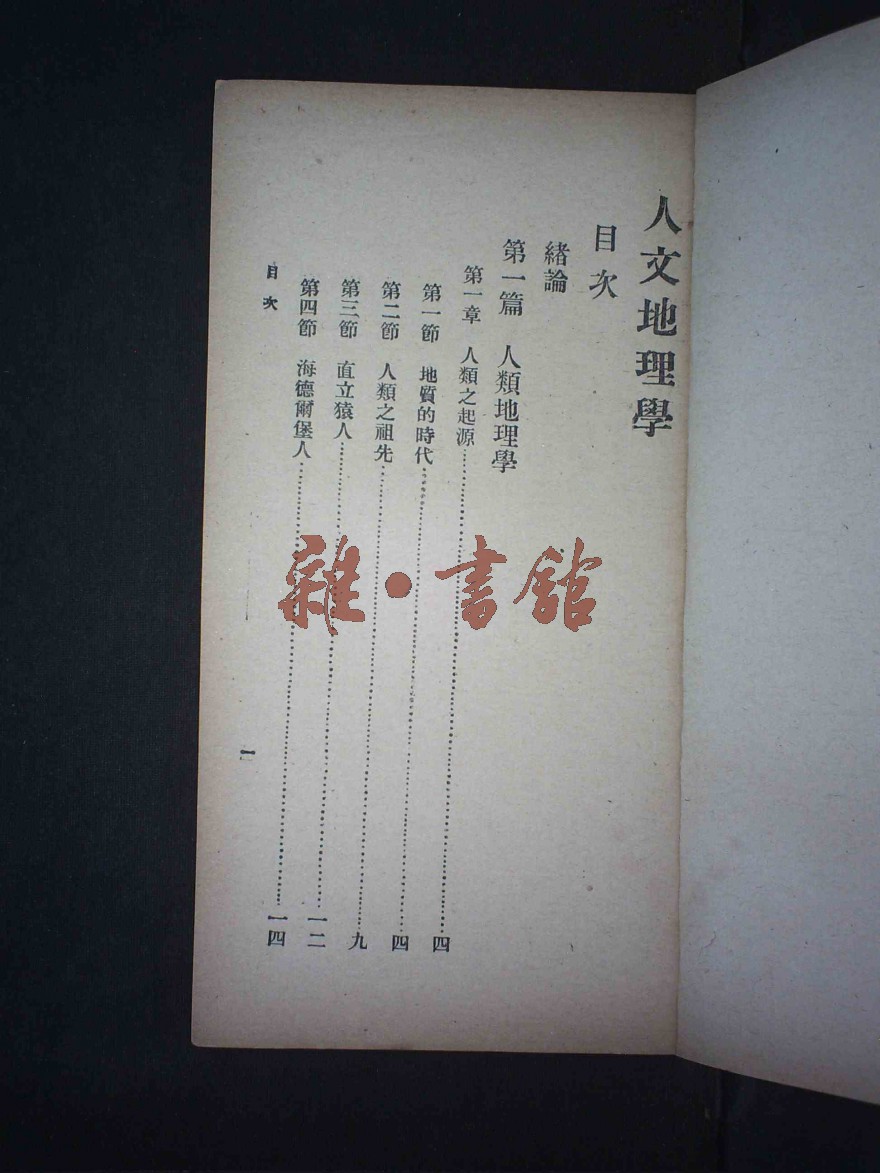 人文地理學
目次
緒論
第一篇 人類地理學
第一章 人類之起源……四
第一節 地質的時代……四
第二節 人類之祖先……九
第三節 直立猿人……一二
第四節 海德爾堡人……一四
目次
一
雜·書館